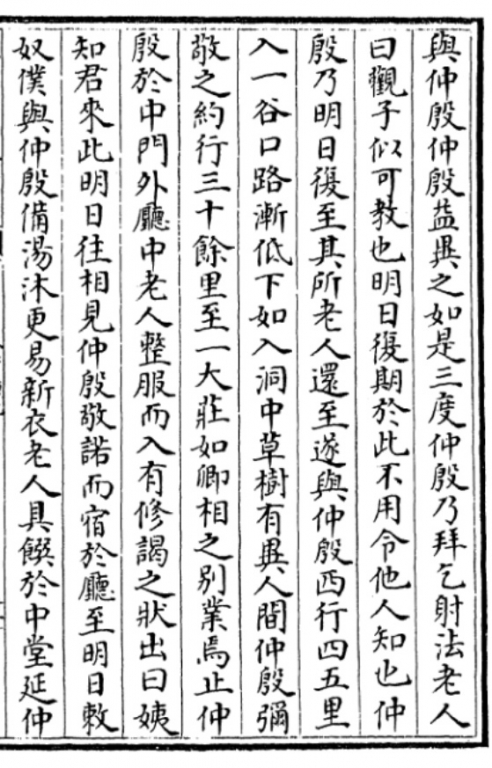 與仲殷仲殷益異之如是三度仲殷乃拜乞射法老人
曰觀子似可教也明日復期於此不用令他人知也仲
殷乃明日復至其所老人還至遂與仲殷西行四五里
入一谷口路漸低下如入洞中草樹有異人間仲殷彌
敬之約行三十餘里至一大莊如卿相之别業焉止仲
殷於中門外廳中老人整服而入有修謁之狀出曰姨
知君來此明日往相見仲殷敬諾而宿於廳至明日敕
奴僕與仲殷備湯沐更易新衣老人具饌於中堂延仲